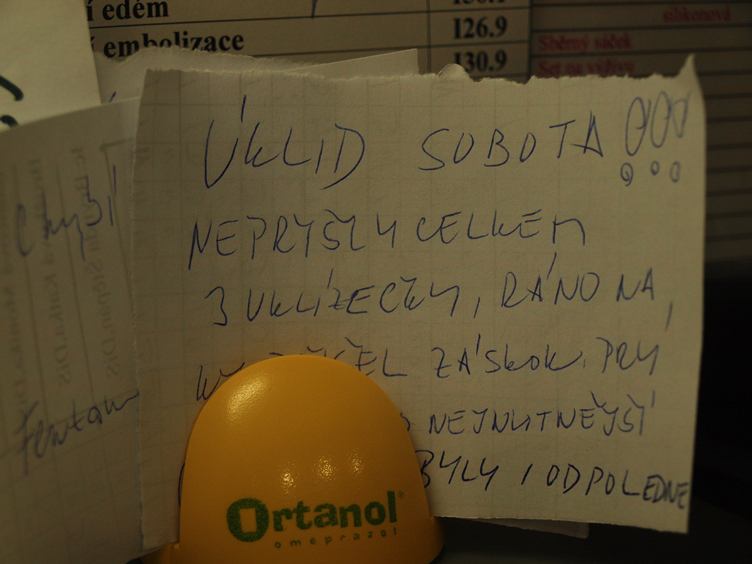 í edém
í embolizace
I26.9
I30.9
silikonová
Sběrný sáček
Set na výživu
ÚKLID SOBOTA!!!
NEPRYŠLY CELKEM
3 UKLÍZEČKY, RÁNO NA
ZÁSKOK, PRÝ
NEJNUTNĚJŠÍ
BYLY I ODPOLEDNE
Chybí
Ortanol
omeprazol